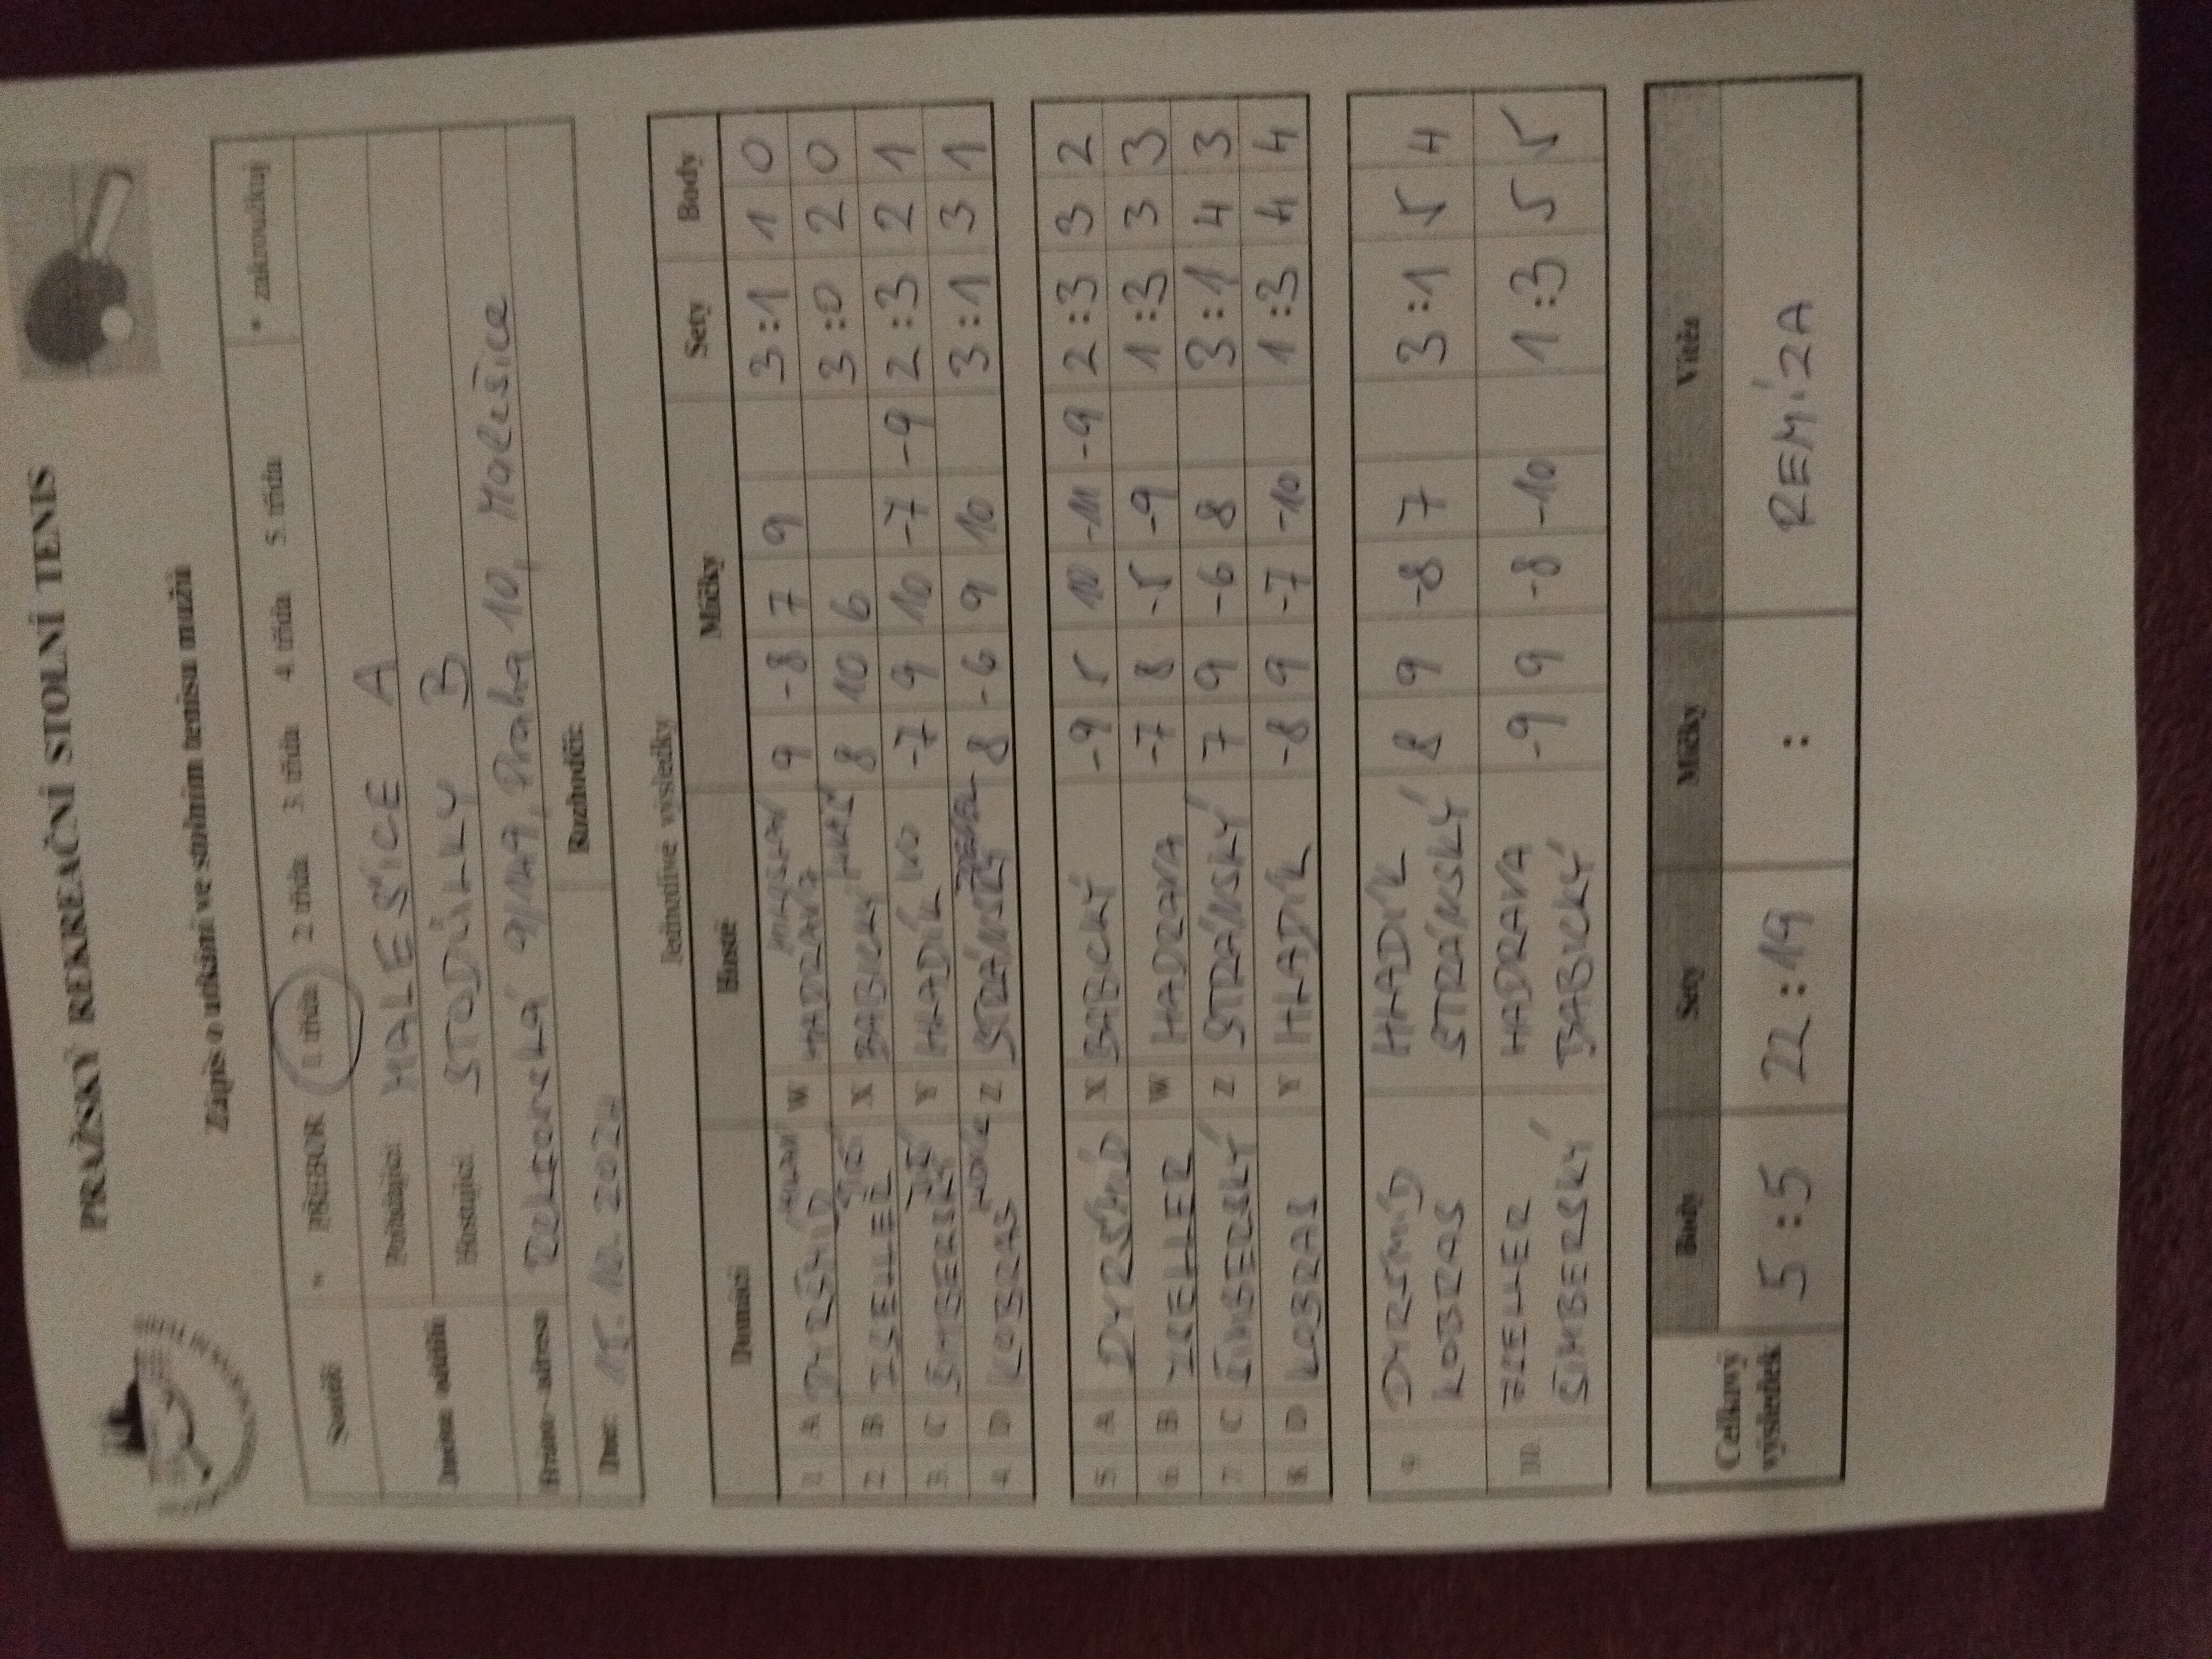 PRAŽSKÝ REKREAČNÍ STOLNÍ TENIS
Zápis o utkání ve stolním tenisu mužů
Soutěž: * PŘEBOR 1. třída 2. třída 3. třída 4. třída 5. třída * zakroužkuj
Jméno oddílu Pořádající: MALEŠICE A
Hostující: STODŮLKY B
Hráno - adresa 9/149, Praha 10, Malešice
Dne: Rozhodčí:
Jednotlivé výsledky
Domácí Hosté Míčky Sety Body
1 A DYRŠMÍD MILAN W HADRAVA 9 -8 7 9 3:1 1 0
2 B ZSELLER JIŘÍ X BABICKÝ 8 10 6 3:0 2 0
3 C ŠIMBERSKÝ JIŘÍ Y HLADÍK IVO -7 9 10 -7 -9 2:3 2 1
4 D KOBRAS Z STRÁNSKÝ 8 -6 9 10 3:1 3 1
5 A DYRŠMÍD X BABICKÝ -9 5 10 -11 -9 2:3 3 2
6 B ZSELLER W HADRAVA -7 8 -5 -9 1:3 3 3
7 C ŠIMBERSKÝ Z STRÁNSKÝ 7 9 -6 8 3:1 4 3
8 D KOBRAS Y HLADÍK -8 9 -7 -10 1:3 4 4
9 DYRŠMÍD HLADÍK 8 9 -8 7 3:1 5 4
KOBRAS STRÁNSKÝ
10 ZSELLER HADRAVA -9 9 -8 -10 1:3 5 5
ŠIMBERSKÝ BABICKÝ
Celkový výsledek Body Sety Míčky Vítěz
5:5 22:19 : REMÍZA